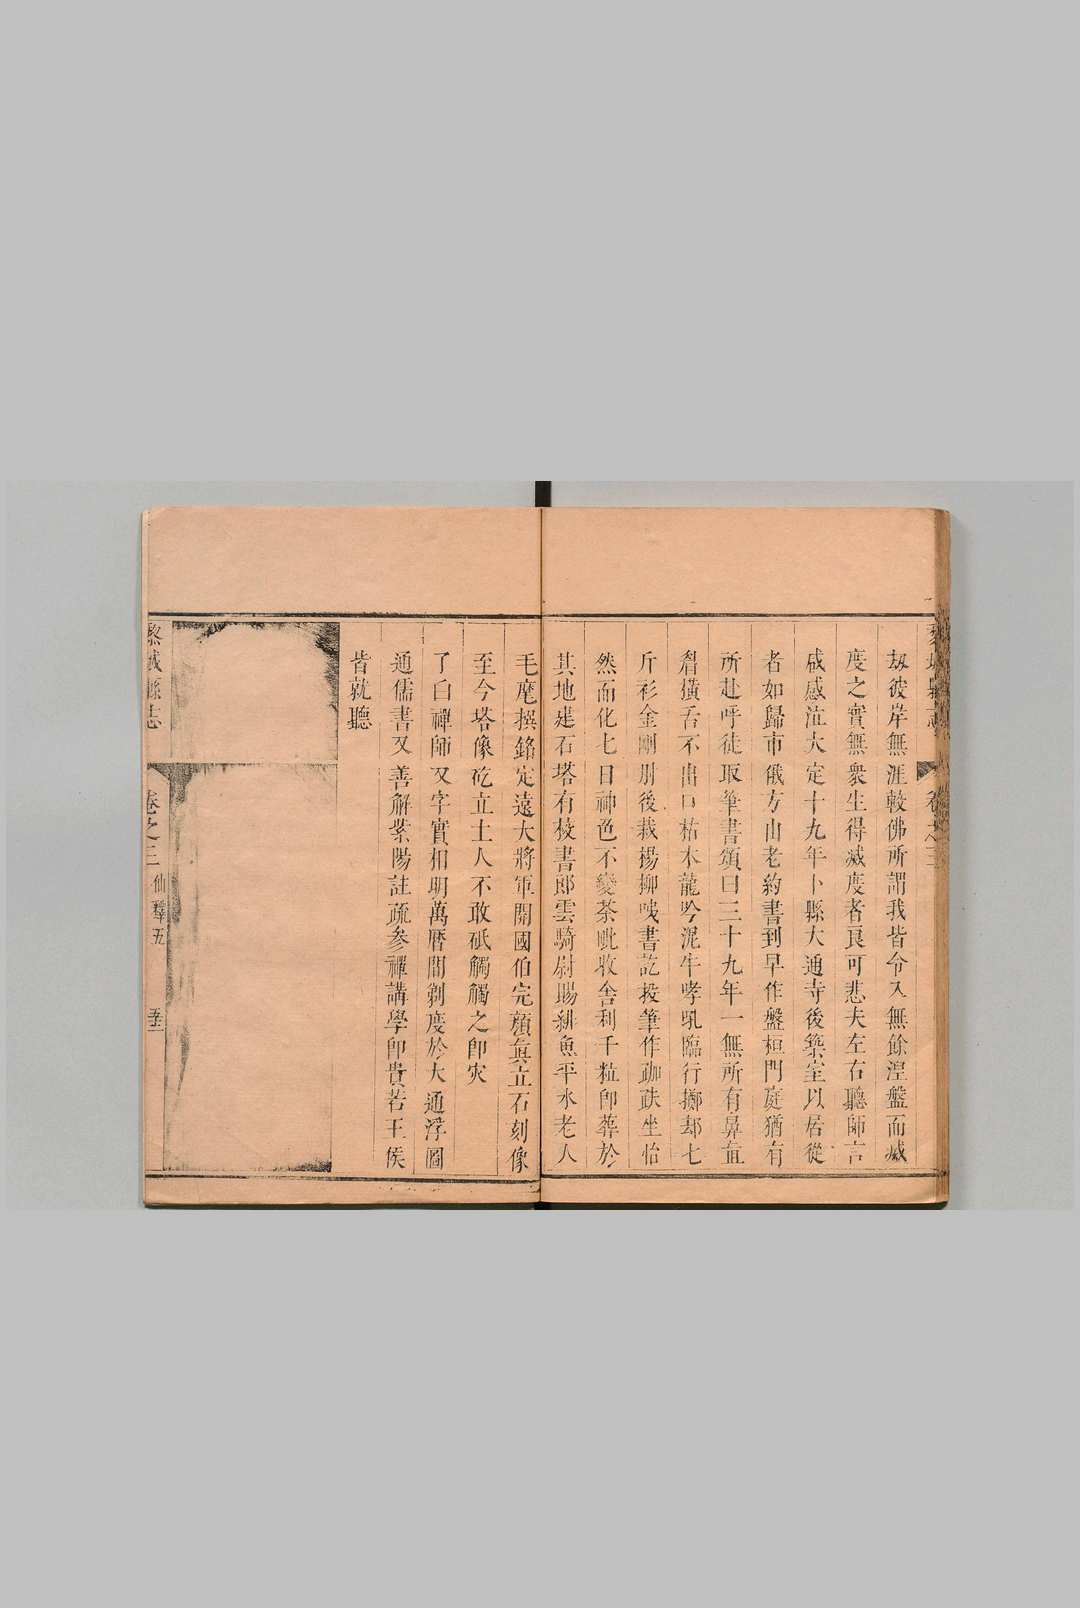 劫彼岸無涯較佛所謂我皆令入無餘涅盤而滅
度之實無衆生得滅度者良可悲夫左右聽師言
咸感泣大定十九年卜縣大通寺後築室以居從
者如歸市俄方山老約書到早作盤桓門庭猶有
所赴呼徒取筆書頌曰三十九年一無所有鼻直
眉橫舌不出口枯木龍吟泥牛哮吼臨行擲却七
斤衫金剛肘後栽楊柳咦書訖投筆作跏趺坐怡
然而化七日神色不變茶毗收舍利千粒卽葬於
其地建石塔有校書郎雲騎尉賜緋魚平水老人
毛麾撰銘定遠大將軍開國伯完顏眞立石刻像
至今塔像屹立土人不敢砥觸觸之卽灾
了白禪師又字實相明萬曆間剃度於大通浮圖
通儒書又善解紫陽註疏參禪講學卽貴若王侯
皆就聽
黎城縣志
卷之三
仙釋五